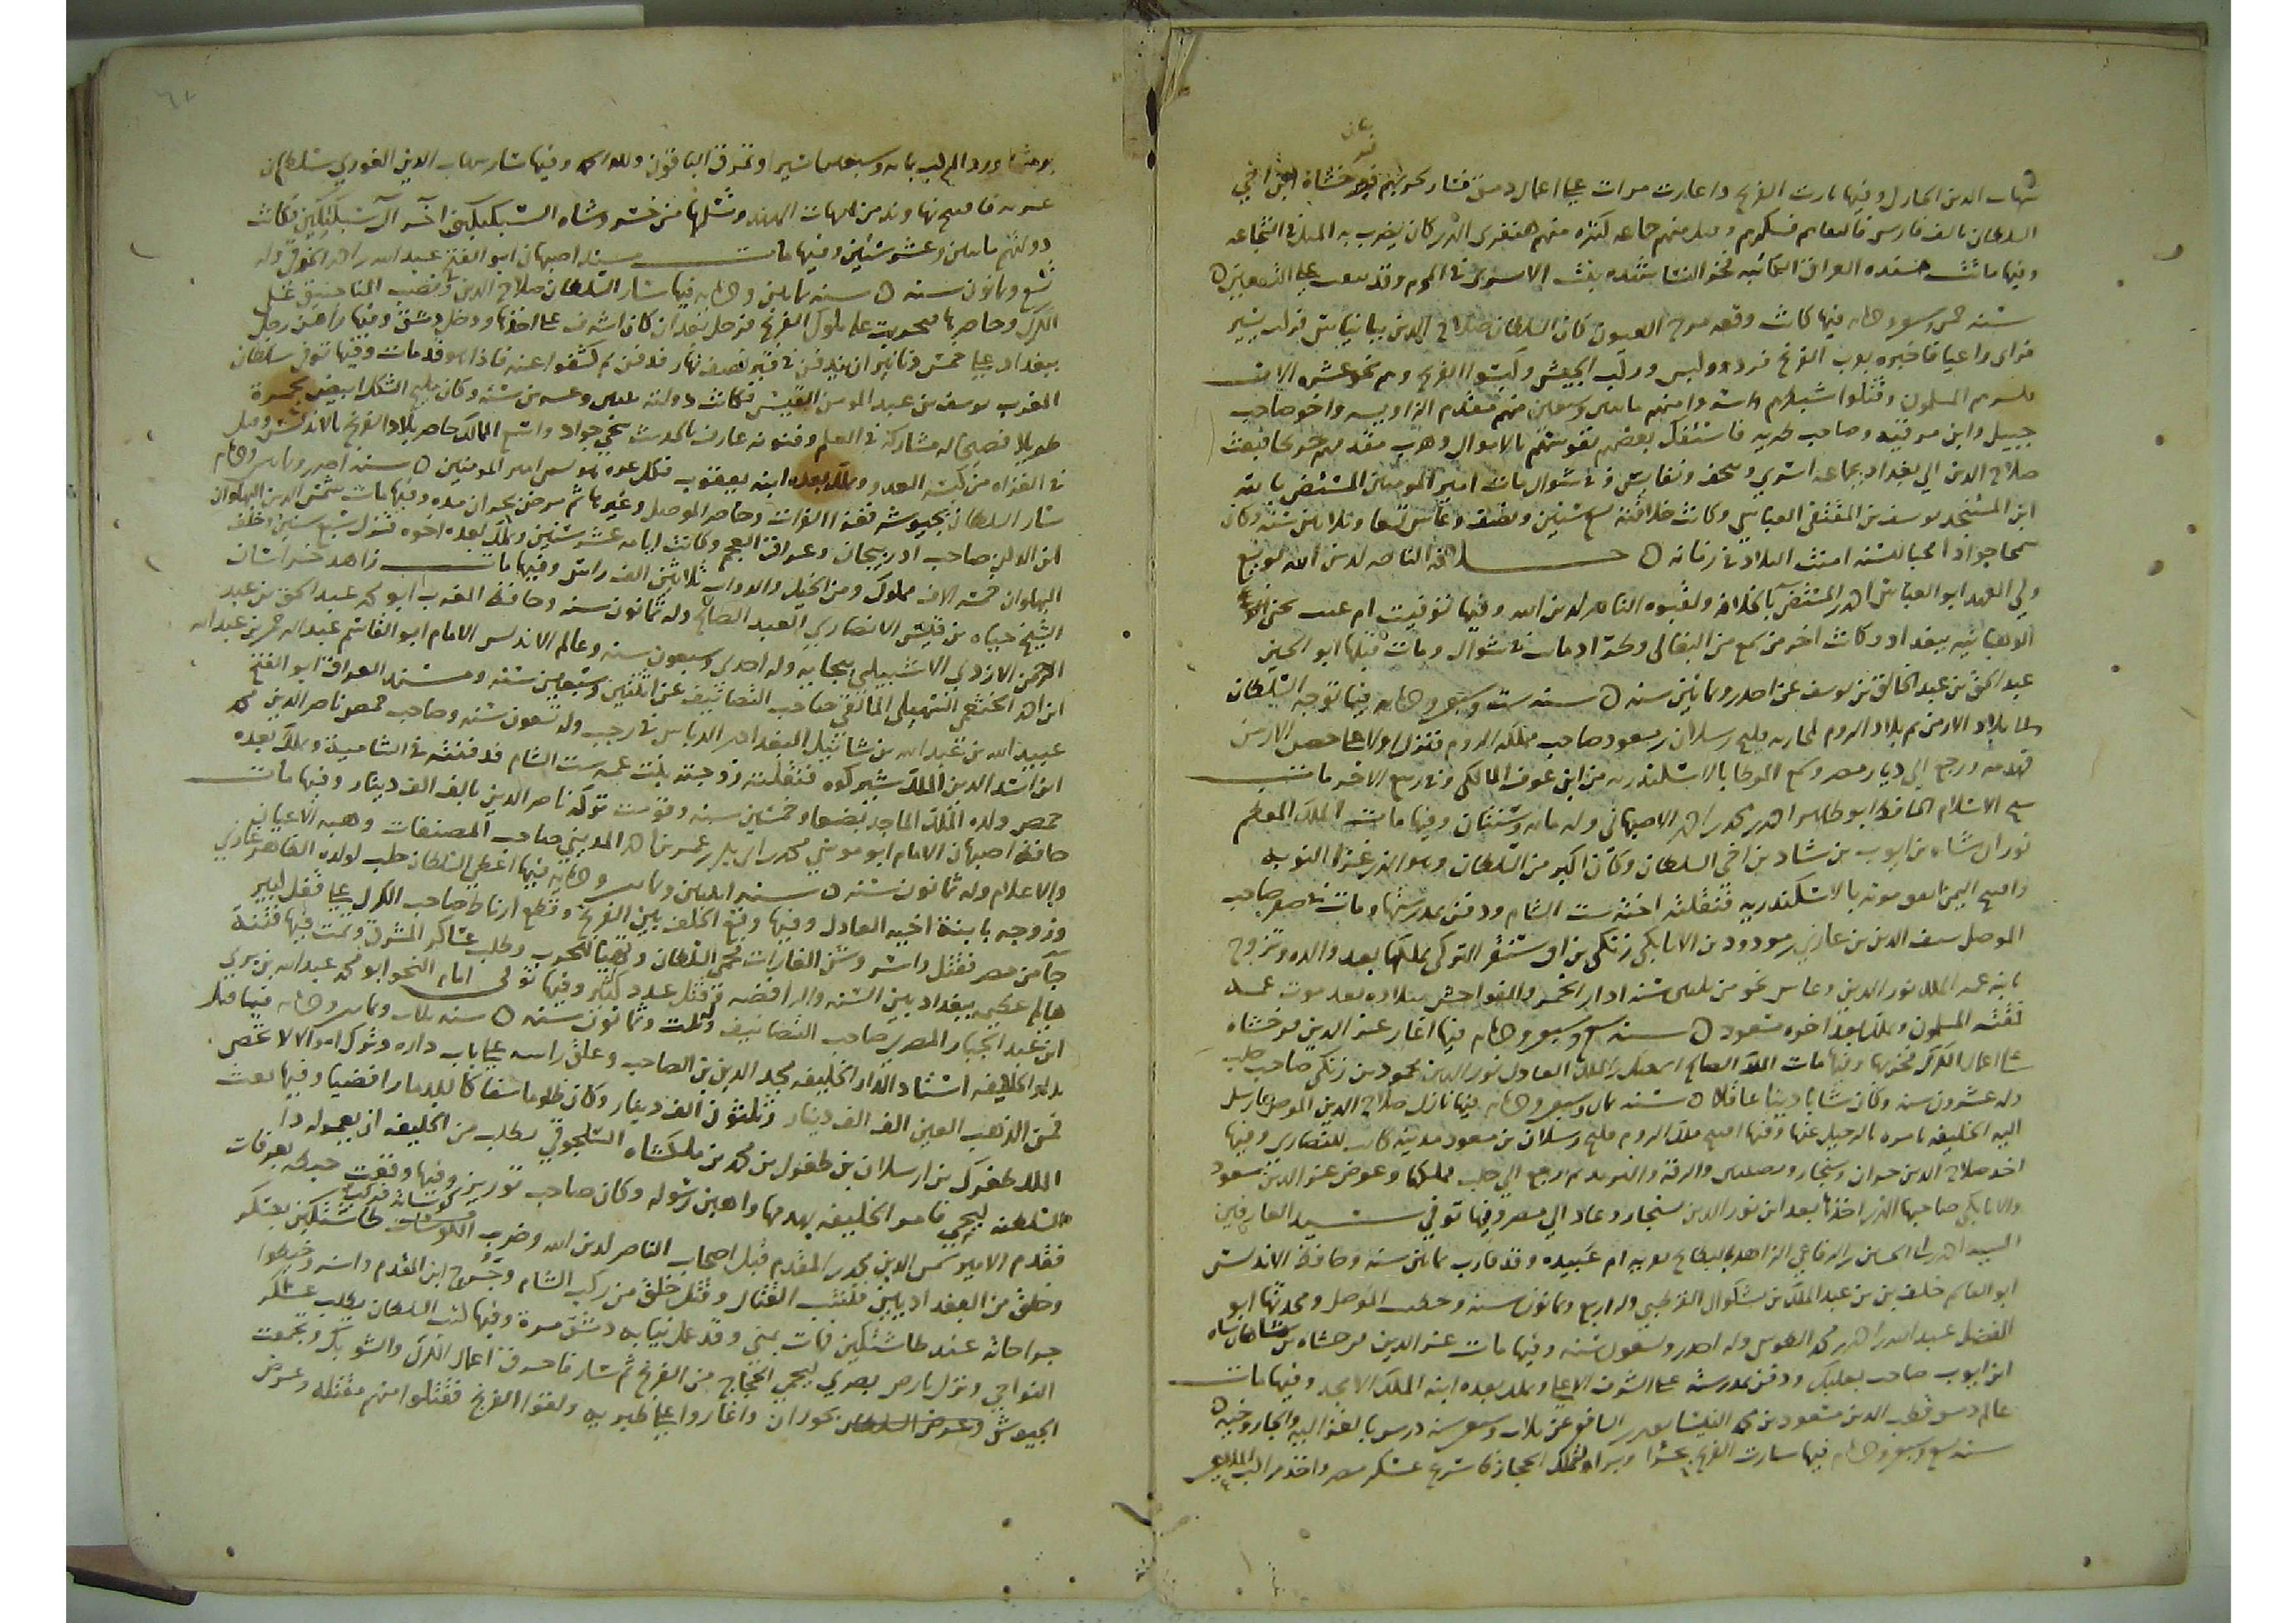 شهاب الدين الحارمي وفيها سارت الفرنج واغارت مرات على اعمال دمشق فسار لحربهم فرخشاه ابن اخي
السلطان بالف فارس فالتقاهم فكسرهم وقتل منهم جماعة كثيرة منهم هنفري الذي كان يضرب به المثل في الشجاعه
وفيها ماتت مسنده العراق الكاتبه فخر النسا شهده بنت الابري في المحرم وقد نيفت على التسعين
سنة خمس وسبعين وخمسمائه فيها كانت وقعه مرج العيون كان السلطان صلاح الدين ببانياس فركب يسير
فراى راعيا فاخبره بقرب الفرنج فرد ولبس وركب الجيش وكبسوا الفرنج وهم نحو عشره الاف
فكسرهم المسلمون وقتلوا منهم مقدم الداويه واخو صاحب
جبيل وابن صاحب طبريه فاستفك بعضهم نفوسهم بالاموال وهرب مقدمهم جريحا فبعث
صلاح الدين الى بغداد بجماعه اسرى وتحف ونفايس وفي شوال مات امير المومنين المستضي بالله
ابن المستنجد يوسف بن المقتفي العباسي وكانت خلافته تسع سنين ونصف وعاش تسعا وثلاثين سنه وكان
سمحا جوادا محبا للسنه امنت البلاد في زمانه خلافة الناصر لدين الله بويع
ولي العهد ابو العباس احمد بن المستضي بالخلافه ولقبوه الناصر لدين الله وفيها توفيت ام عتب تجني
الوهبانيه ببغداد وكانت اخر من سمع من النعالي وطراد ماتت في شوال ومات قبلها ابو الحسين
عبد الحق بن عبد الخالق بن يوسف عن احدى وثمانين سنه سنة ست وسبعين وخمسمائه فيها توجه السلطان
الى بلاد الارمن ثم بلاد الروم لمحاربه قليج رسلان بن مسعود صاحب مملكه الروم فنزل اولا على حصن للارمن
فهدمه ورجع الى ديار مصر وسمع الموطا بالاسكندريه من ابن عوف المالكي وفي ربيع الاخر مات
شيخ الاسلام الحافظ ابو طاهر احمد بن محمد بن احمد الاصبهاني وله مائه وسنتان وفيها مات الملك المعظم
توران شاه بن ايوب بن شاذي اخي السلطان وكان اكبر من السلطان وهو الذي غزا النوبه
وافتتح اليمن اتفق موته بالاسكندريه فنقلته اخته ست الشام ودفن بمدرستها ومات في صفر صاحب
الموصل سيف الدين بن غازي بن مودود بن الاتابكي زنكي بن اق سنقر التركي تملكها بعد والده وتزوج
بابنه عمه الملك نور الدين وعاش نحو من ثلاثين سنه ادار الخمر والفواحش ببلاده بعد موت عمه
فمقته المسلمون وملك بعده اخوه مسعود سنة سبع وسبعين وخمسمائه فيها اغار عز الدين فرخشاه
على اعمال الكرك فخربها وفيها مات الملك الصالح اسمعيل بن الملك العادل نور الدين محمود بن زنكي صاحب حلب
وله عشرون سنه وكان شابا دينا عاقلا سنة ثمان وسبعين وخمسمائه فيها نازل صلاح الدين الموصل فارسل
اليه الخليفه يامره بالرحيل عنها وفيها افتتح ملك الروم قليج رسلان بن مسعود مدينه كانت للنصارى وفيها
اخذ صلاح الدين حران وسنجار ونصيبين والرقه والبيره ثم رجع الى حلب فملكها وعوض عز الدين مسعود
والاتابكي صاحبها الذي اخذها بعد ابن نور الدين سنجار وعاد الى مصر وفيها توفي سيد العارفين
السيد احمد بن ابي الحسن بن الرفاعي الزاهد بالبطايح بقريه ام عبيده وقد قارب ثمانين سنه وحافظ الاندلس
ابو القاسم خلف بن عبد الملك بن بشكوال القرطبي وله اربع وثمانون سنه وخطيب الموصل ومحدثها ابو
الفضل عبد الله بن احمد بن محمد الطوسي وله احدى وتسعون سنه وفيها مات عز الدين فرخشاه بن شاهنشاه
ابن ايوب صاحب بعلبك ودفن بمدرسته على الشرف الاعلى وملك بعده ابنه الملك الامجد وفيها مات
عالم دمشق قطب الدين مسعود بن محمد النيسابوري الشافعي عن ثلاث وسبعين سنه درس بالغزاليه والجاروخيه
سنة تسع وسبعين وخمسمائه فيها سارت الفرنج بحرا وبرا لتملك الحجاز فاسرع عسكر مصر واخذ مراكب
وتمزق الباقون ولله الحمد وفيها سار شهاب الدين الغوري سلطان
غزنه فافتتح نهاوند من امهات الهند وتسلمها من خسروشاه السبكتكيني اخر ال سبكتكين فكانت
دولتهم مايتين وعشر سنين وفيها مات مسند اصبهان ابو الفتح عبد الله بن احمد الخرقي وله
تسع وثمانون سنه سنة ثمانين وخمسمائه فيها سار السلطان صلاح الدين ونصب المناجنيق على
الكرك وحاصرها فتحزبت عليه ملوك الفرنج فرحل بعد ان كان اشرف على اخذها ودخل دمشق وفيها راهن رجل
ببغداد على خمس دنانير ان يندفن في قبر نصف نهار فدفن ثم كشفوا عنه فاذا هو قد مات وفيها توفي سلطان
المغرب يوسف بن عبد المومن القيسي فكانت دولته اثنين وعشرين سنه وكان مليح الشكل ابيض بحمرة
طويلا فصيحا له مشاركه في العلم وفنونه عارف بالحديث سخي جواد واتسع الممالك حاصر بلاد الفرنج بالاندلس وقتل
في الغزاه من كبسه العدو وملك بعده ابنه يعقوب سنة احدى وثمانين وخمسمائه
سار السلطان بجيوشه فقطع الفرات وحاصر الموصل وغيرها ثم مرض بحران مده وفيها مات شمس الدين البهلوان
ابن الدكز صاحب اذربيجان وعراق العجم وكانت ايامه عشر سنين وملك بعده اخوه قزل سبع سنين وخلف
البهلوان خمسه الاف مملوك ومن الخيل والدواب ثلاثين الف راس وفيها مات زاهد حران
الشيخ حياه بن قيس الانصاري العبد الصالح وله ثمانون سنه وحافظ المغرب ابو محمد عبد الحق بن عبد
الرحمن الازدي الاشبيلي ببجايه وله احدى وسبعون سنه وعالم الاندلس الامام ابو القاسم عبد الرحمن بن عبد الله
ابن احمد الخثعمي السهيلي المالقي صاحب التصانيف عن اثنتين وسبعين سنه ومسند العراق ابو الفتح
عبيد الله بن عبد الله بن شاتيل البغدادي الدباس في رجب وله تسعون سنه وصاحب حمص ناصر الدين محمد
ابن اسد الدين الملك شيركوه فنقلته زوجته بنت عمه ست الشام فدفنته في الشاميه وملك بعده
حمص ولده الملك المجاهد بضعا وخمسين سنه وقومت تركه ناصر الدين بالف الف دينار وفيها مات
حافظ اصبهان الامام ابو موسى محمد بن ابي بكر عمر بن احمد المديني صاحب المصنفات وهبه الاعيان
والاعلام وله ثمانون سنه سنة اثنتين وثمانين وخمسمائه فيها اعطى السلطان حلب لولده الظاهر غازي
وزوجه بابنة اخيه العادل وفيها وقع الخلف بين الفرنج وقطع ارناط صاحب الكرك على قفل كبير
جاء من مصر فقتل واسر وشن الغارات فحمي السلطان وتهيأ للحرب وطلب عساكر المشرق وتمت فيها فتنة
هايله عظمى ببغداد بين السنه والرافضه وقتل عدد كثير وفيها توفي امام النحو ابو محمد عبد الله بن بري
ابن عبد الجبار المصري صاحب التصانيف وله ثلث وثمانون سنه سنة ثلاث وثمانين وخمسمائه فيها قتل
الخليفه استاد الدار الخليفه مجد الدين بن الصاحب وعلق راسه على باب داره وترك اموالا لا تحصى
فمن الذهب العين الف الف دينار وثلثون الف دينار وكان ظلوما سفاكا للدما رافضيا وفيها بعث
الملك طغرل بن ارسلان بن طغرل بن محمد بن ملكشاه السلجوقي يطلب من الخليفه ان يعمر له دار
السلطنه ليجي فامر الخليفه بهدمها واهين رسوله وكان صاحب توريز وفيها وقعت خبطه بعرفات
فتقدم الامير شمس الدين محمد بن المقدم قبل اصحاب الناصر لدين الله وضرب كوساته فركب طاشتكين بعسكر
وخلق من البغداديين فلتقت القتال وقتل خلق من ركب الشام وجرح ابن المقدم واسر وخيطوا
جراحاته عند طاشتكين فمات بمنى وقد عمل نيابه دمشق مرة وفيها كتب السلطان يطلب عسكر
النواحي ونزل بارض بصرى ليحمي الحجاج من الفرنج ثم سار فاحرق اعمال الكرك والشوبك وتجمعت
الجيوش بحوران واغاروا على طبريه ولقوا الفرنج فقتلوا منهم مقتله وعرض